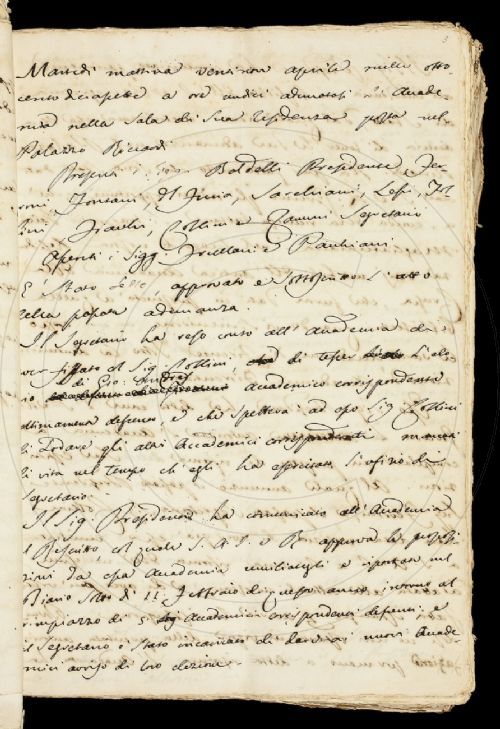 3
Martedì mattina ventinove aprile mille otto-
cento diciasette a ore undici adunatasi l'Acade-
mia nella Sala di Sua residenza posta nel
Palazzo Riccardi
Presenti i Sigg. Baldelli Presidente, Fer-
roni, Fontani, Del Furia, Sarchiani, Lessi, Fol-
lini, Collini e Zannoni Segretario
Assenti i Sigg. e Pauliani
E' Stato letto, approvato e sottoscritto l'atto
della passata adunanza.
Il Segretario ha reso conto all'Academia d'a-
ver fissato col Sig. Collini, di tesser l'elo-
gio di Gio: Academico corrispondente
ultimamente defunto, e che spetterà ad esso Sig. Collini
di lodare gli altri Accademici corrispondenti
di vita nel tempo ch'egli ha esercitato l'ufizio di
Segretario.
Il Sig. Presidente ha comunicato all'Academia
il Rescritto col quale S. A. I. e R. approva le proposi-
zioni da essa Academia umiliategli e riportate nel
Diario Sotto dì 11 Febbraio di quest'anno intorno al
rimpiazzo di 5 Academici corrispondenti defunti: e
il Segretario è stato incaricato di dare ai nuovi Acade-
mici avviso di loro elezione.